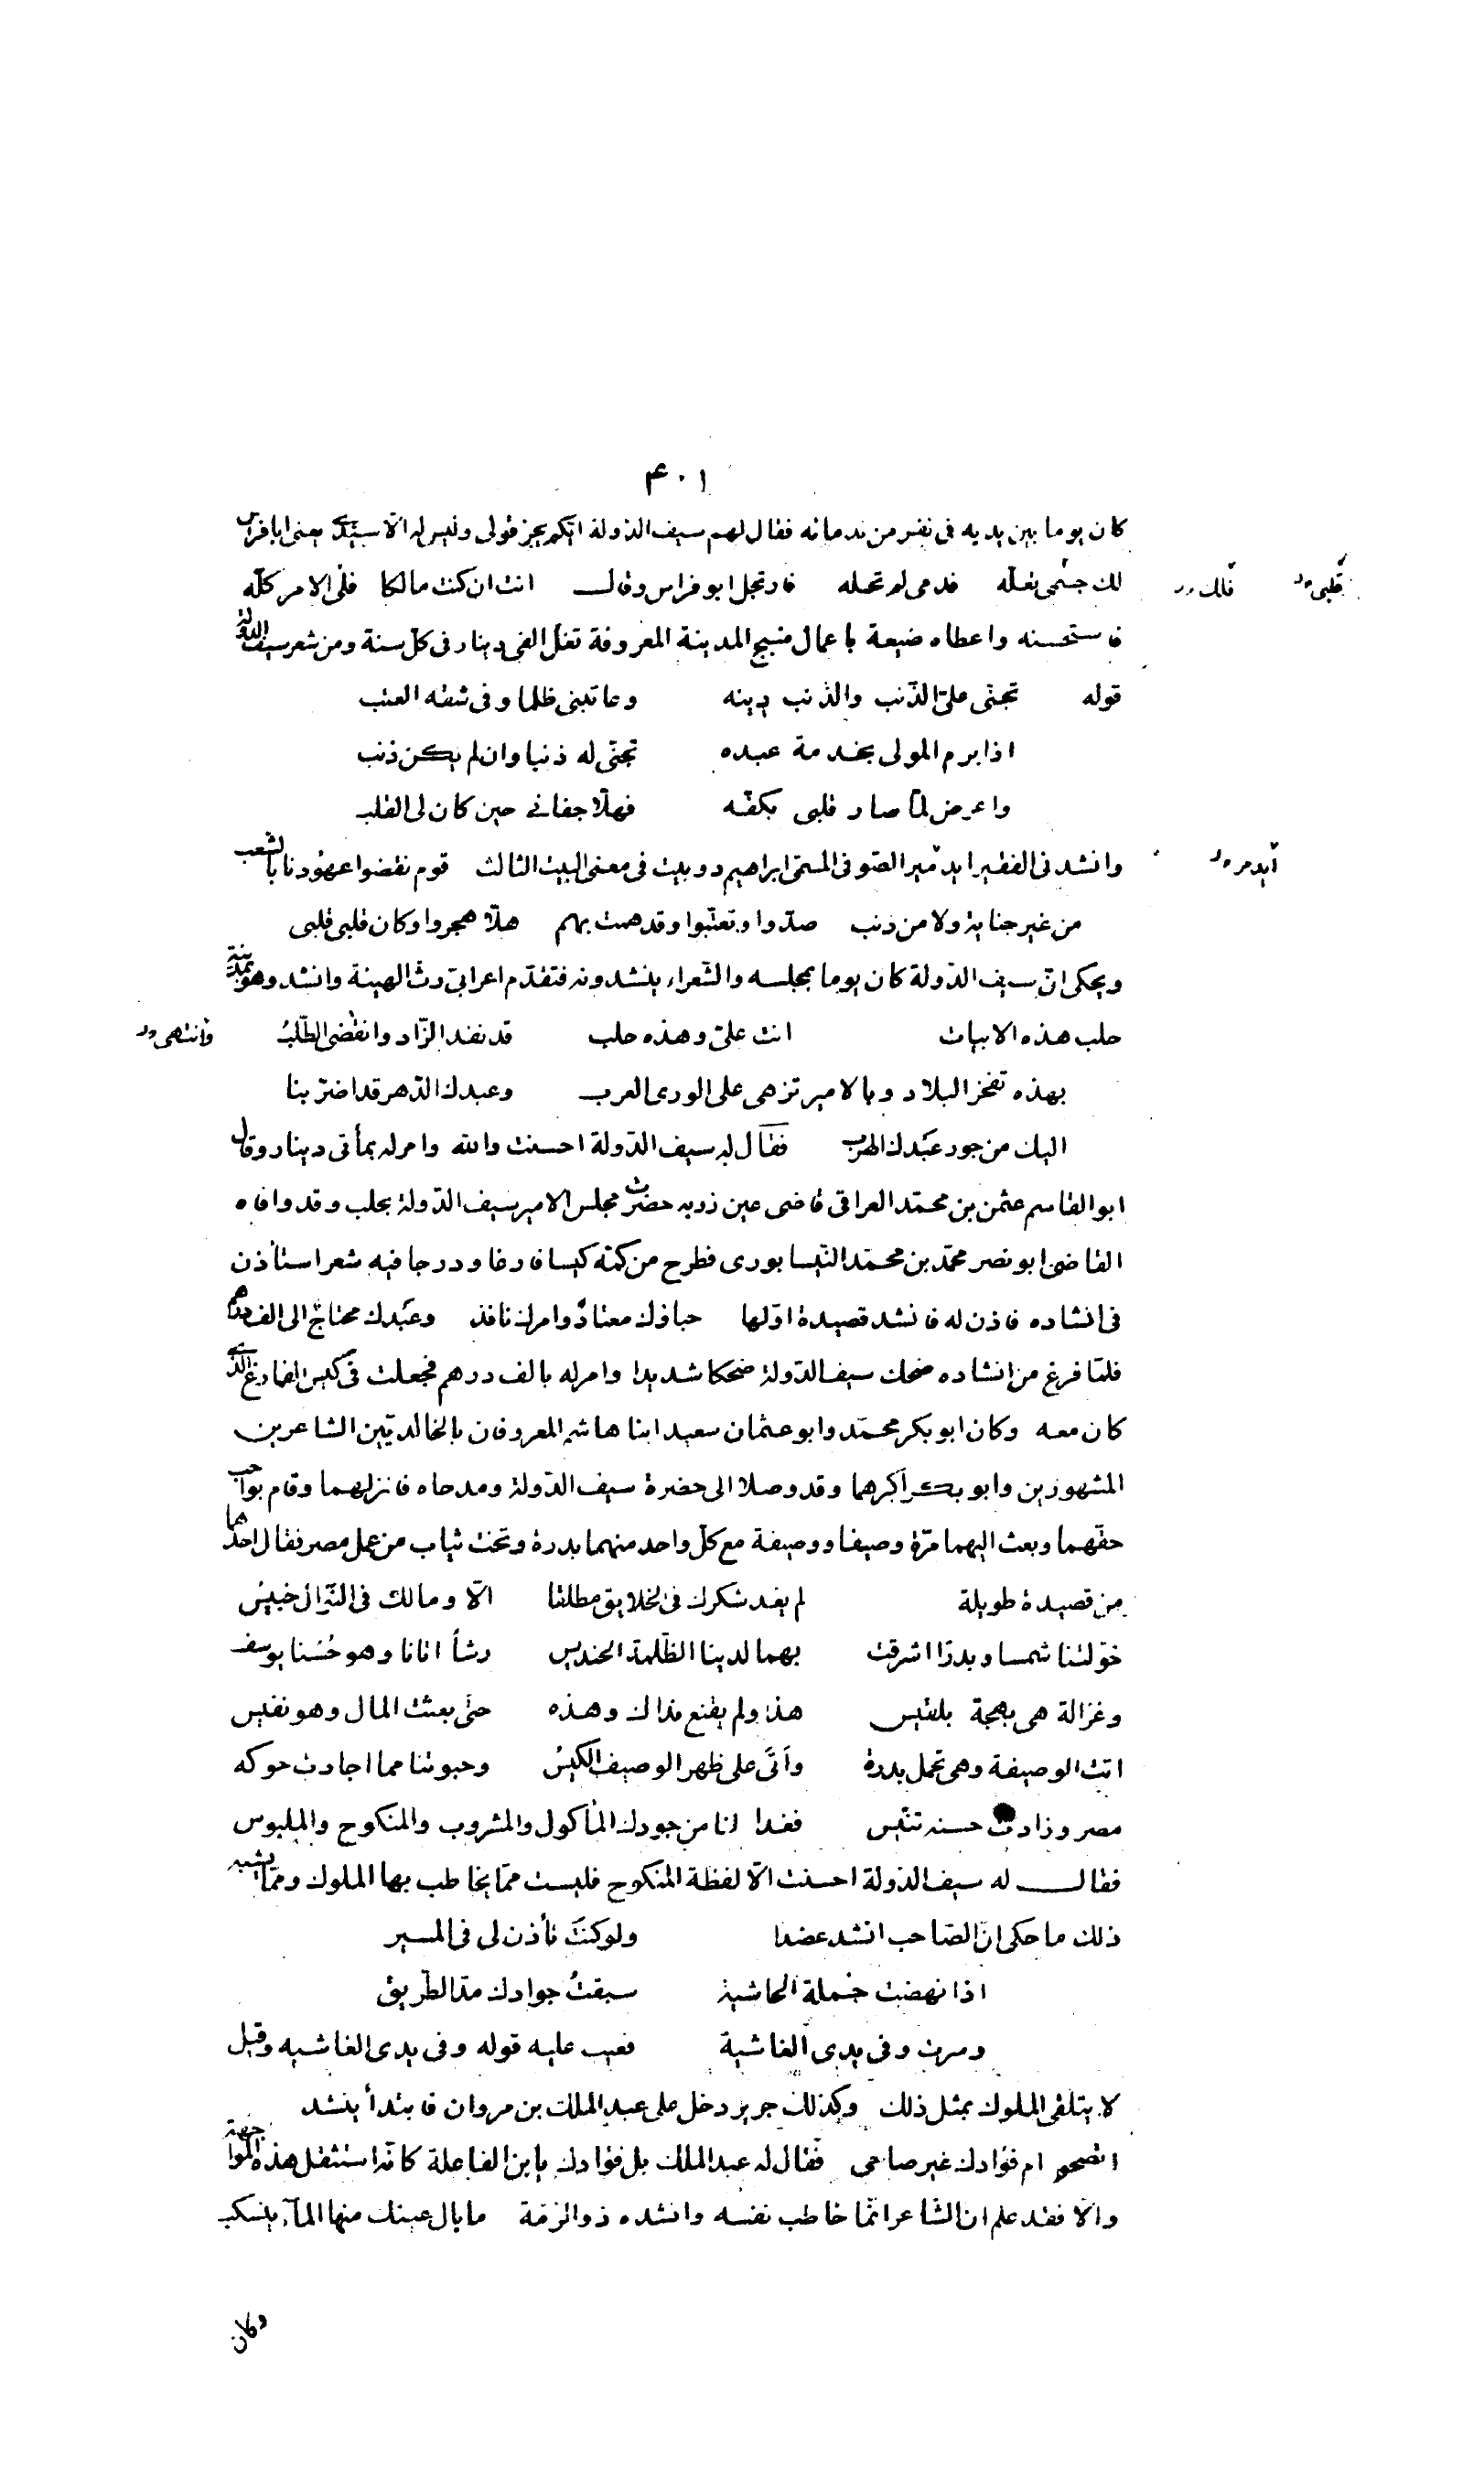 ۴۰۱
كان يوما بين يديه فى نفر من ندمائه فقال لهم سيف الدولة ايكم يجيز قولى وليس له الا سيدى يعنى ابا فراس
لك جسمى تعله فدمى لم تحله فارتجل ابو فراس وقال انت ان كنت مالكا فلى الامر كله
قلبى
فلك
فاستحسنه واعطاه ضيعة باعمال منبج المدينة المعروفة تغل الفى دينار فى كل سنة ومن شعر سيف الدولة
قوله تجنى على الذنب والذنب ذنبه وعاتبنى ظلما وفى شقه العتب
اذا برم المولى بخدمة عبده تجنى له ذنبا وان لم يكن ذنب
واعرض لما صار قلبى بكفه فهلا جفانى حين كان لى القلب
وانشدنى الفقير ايدمير الصوفى المسمى ابراهيم دوبيت فى معنى البيت الثالث قوم نقضوا عهودنا بالشعب
ايدمر
من غير جناية ولا من ذنب صدوا وتعتبوا وقد همت بهم هلا هجروا وكان قلبى قلبى
ويحكى ان سيف الدولة كان يوما بمجلسه والشعراء ينشدونه فتقدم اعرابى رث الهيئة وانشد وهو بمدينة
حلب هذه الابيات انت على وهذه حلب قد نفد الزاد وانقضى الطلب
وانتهى
بهذه تفخر البلاد وبالامير تزهى على الورى العرب وعبدك الدهر قد اضر بنا
اليك من جور عبدك الهرب فقال له سيف الدولة احسنت والله وامر له بمأتى دينار وقال
ابو القاسم عثمن بن محمد العراقى قاضى عين زربه حضرت مجلس الامير سيف الدولة بحلب وقد وافاه
القاضى ابو نصر محمد بن محمد النيسابورى فطرح من كمه كيسا فارغا ودرجا فيه شعر استأذن
فى انشاده فاذن له فانشد قصيدة اولها حباؤك معتاد وامرك نافذ وعبدك محتاج الى الف درهم
فلما فرغ من انشاده ضحك سيف الدولة ضحكا شديدا وامر له بالف درهم فجعلت فى كيس الفارغ الذى
كان معه وكان ابو بكر محمد وابو عثمان سعيد ابنا هاشم المعروفان بالخالديين الشاعرين
المشهورين وابو بكر اكبرهما وقد وصلا الى حضرة سيف الدولة ومدحاه فانزلهما وقام بواجب
حقهما وبعث اليهما مرة وصيفا ووصيفة مع كل واحد منهما بدرة وتخت ثياب من عمل مصر فقال احدهما
من قصيدة طويلة لم يغد شكرك فى الخلايق مطلقا الا ومالك فى النوال حبيس
خولتنا شمسا وبدرا اشرقت بهما لدينا الظلمة الحنديس رشأ اتانا وهو حسنا يوسف
وغزالة هى بهجة بلقيس هذا ولم يقنع بذاك وهذه حتى بعثت المال وهو نفيس
اتت الوصيفة وهى تحمل بدرة وأتى على ظهر الوصيف الكيس وحبوتنا مما اجادت حوكه
مصر وزادت حسنه تنيس فغدا لنا من جودك المأكول والمشروب والمنكوح والملبوس
فقال له سيف الدولة احسنت الا لفظة المنكوح فليست مما يخاطب بها الملوك ومما يشبه
ذلك ما حكى ان الصاحب انشد عضدا ولو كنت تأذن لى فى المسير
اذا نهضت جملة الحاشية سبقت جوادك مد الطريق
وسرت وفى يدى الغاشية فعيب عليه قوله وفى يدى الغاشيه وقيل
لا يتلقى الملوك بمثل ذلك وكذلك جرير دخل على عبد الملك بن مروان فابتدأ ينشد
اتصحو ام فؤادك غير صاحى فقال له عبد الملك بل فؤادك يا ابن الفاعلة كانه استثقل هذه المواجهة
والا فقد علم ان الشاعر انما خاطب نفسه وانشده ذو الرمة ما بال عينك منها المآء ينسكب
وكان